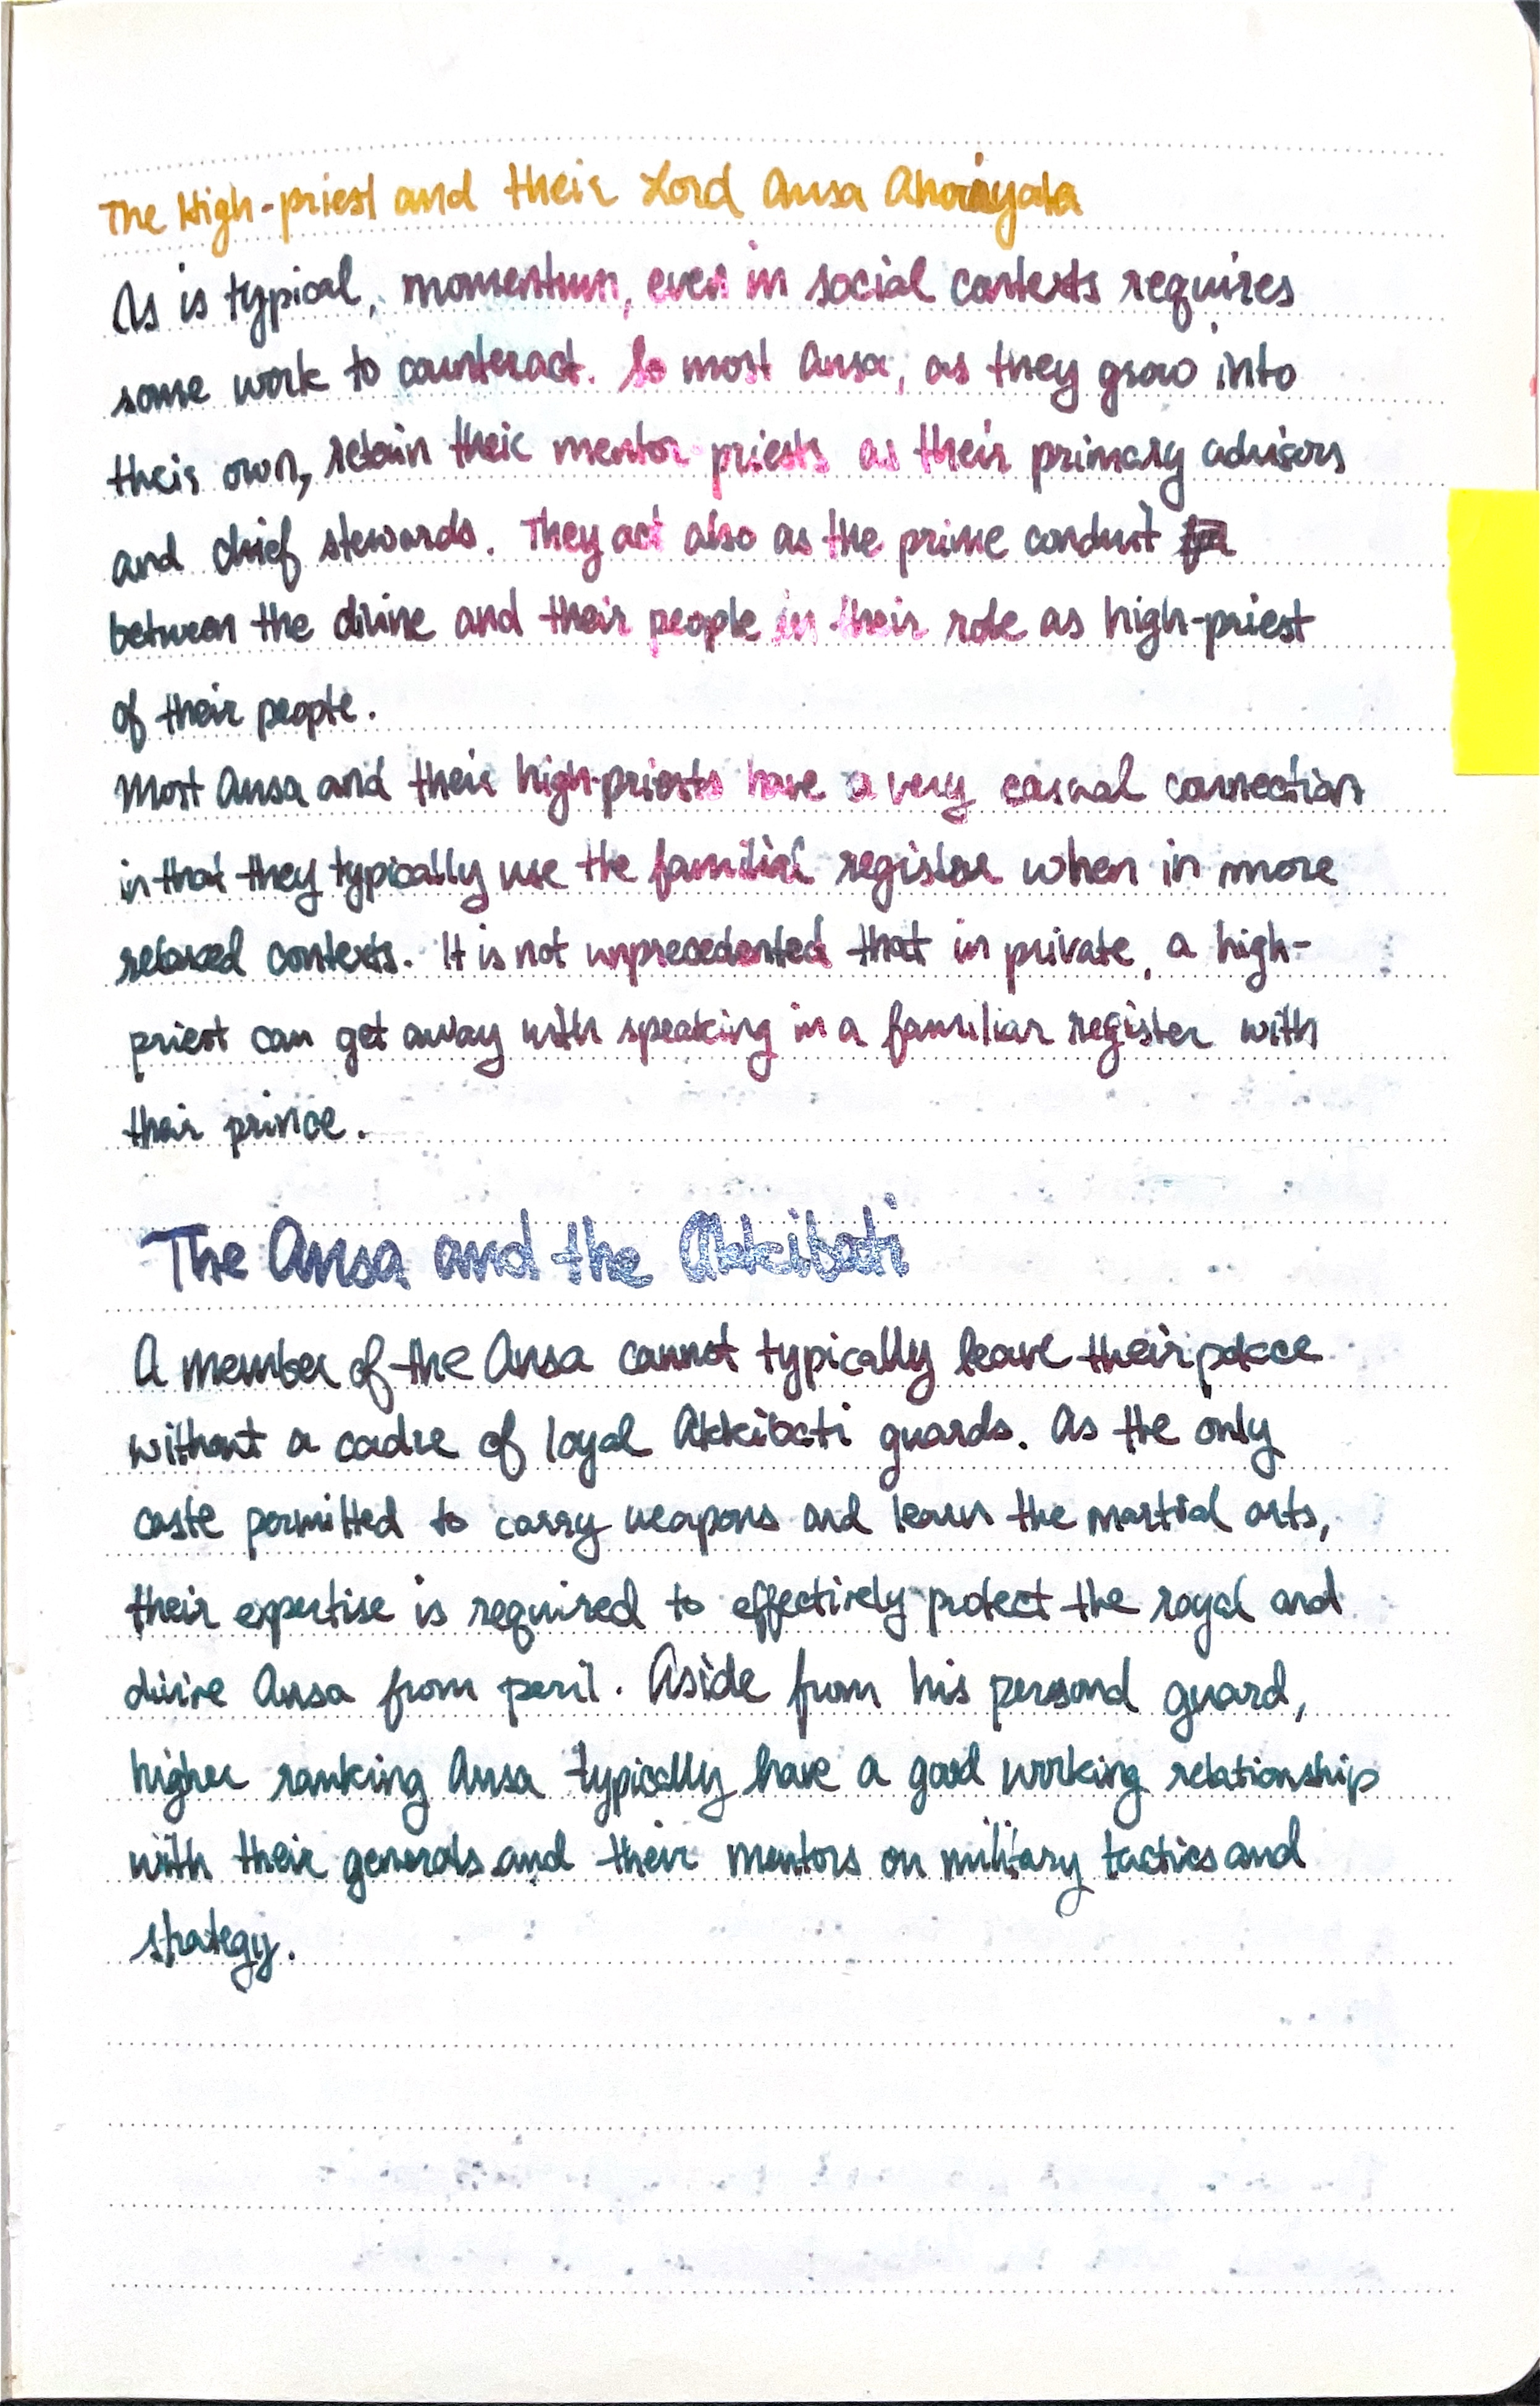 The High-priest and their Lord Ansa
As is typical, momentum, even in social contexts requires
some work to counteract. So most Ansa, as they grow into
their own, retain their mentor priests as their primary advisors
and chief stewards. They act also as the prime conduit
between the divine and their people in their role as high-priest
of their people.
Most Ansa and their high-priests have a very casual connection
in that they typically use the familial register when in more
relaxed contexts. It is not unprecedented that in private, a high-
priest can get away with speaking in a familiar register with
their prince.
The Ansa and the Akkibati
A member of the Ansa cannot typically leave their palace
without a cadre of loyal Akkibati guards. As the only
caste permitted to carry weapons and learn the martial arts,
their expertise is required to effectively protect the royal and
divine Ansa from peril. Aside from his personal guard,
higher ranking Ansa typically have a good working relationship
with their generals and their mentors on military tactics and
strategy.